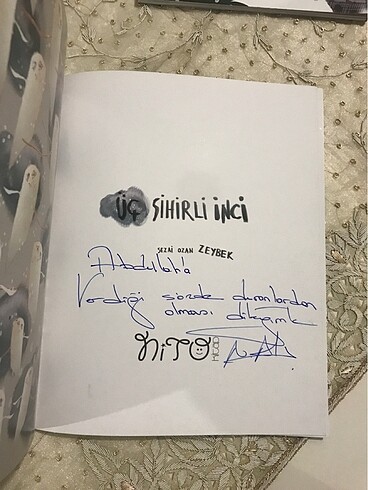 ÜÇ SİHİRLİ İNCİ
SEZAİ OZAN ZEYBEK
Abdullah'a
Verdiği sözde duranlardan
olması dileğimle
NİTO
KİTAP